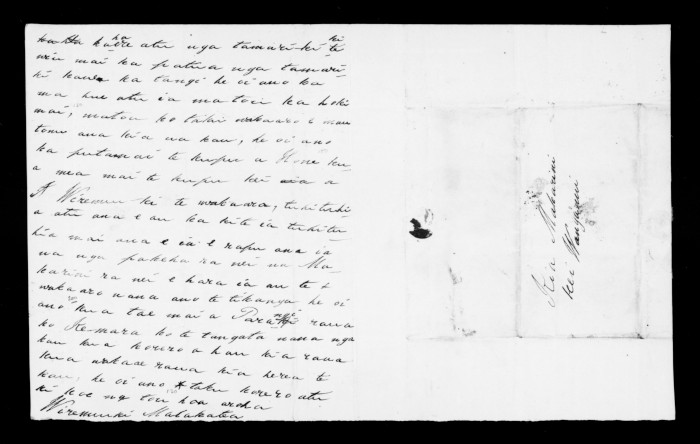 ka haere atu nga tamariki ki te
wiu mai ka patua nga tamari
ki ka tangi he oi ano ka
ma hue atu ia matou ka hoki
mai, matou ko taku wakaaro e mau
tonu ana kia ua kau, he oi ano
ka putamai te kupu a Hone ku
a mea mai te kupu kei ia a
Wiremu ki te wakaara, tuhituhi
a atu ana e au ka kite ia tuhitu
hia mai ana e ia e rapu ana ia
na nga pakeha ra nei na Ma
karini ra nei e hara ia au te
wakaaro nana ano te tikanga he oi
ano kua tae mai a Parangi raua
ko Kemara ko te tangata nana nga
kau kua korero a hau kia raua
kua wakaae raua kia herea te
kau, he oi ano taku korero atu
ki koe na tou hoa aroha
Wiremu Matakatea
Kia Makarini
kei Wanganui